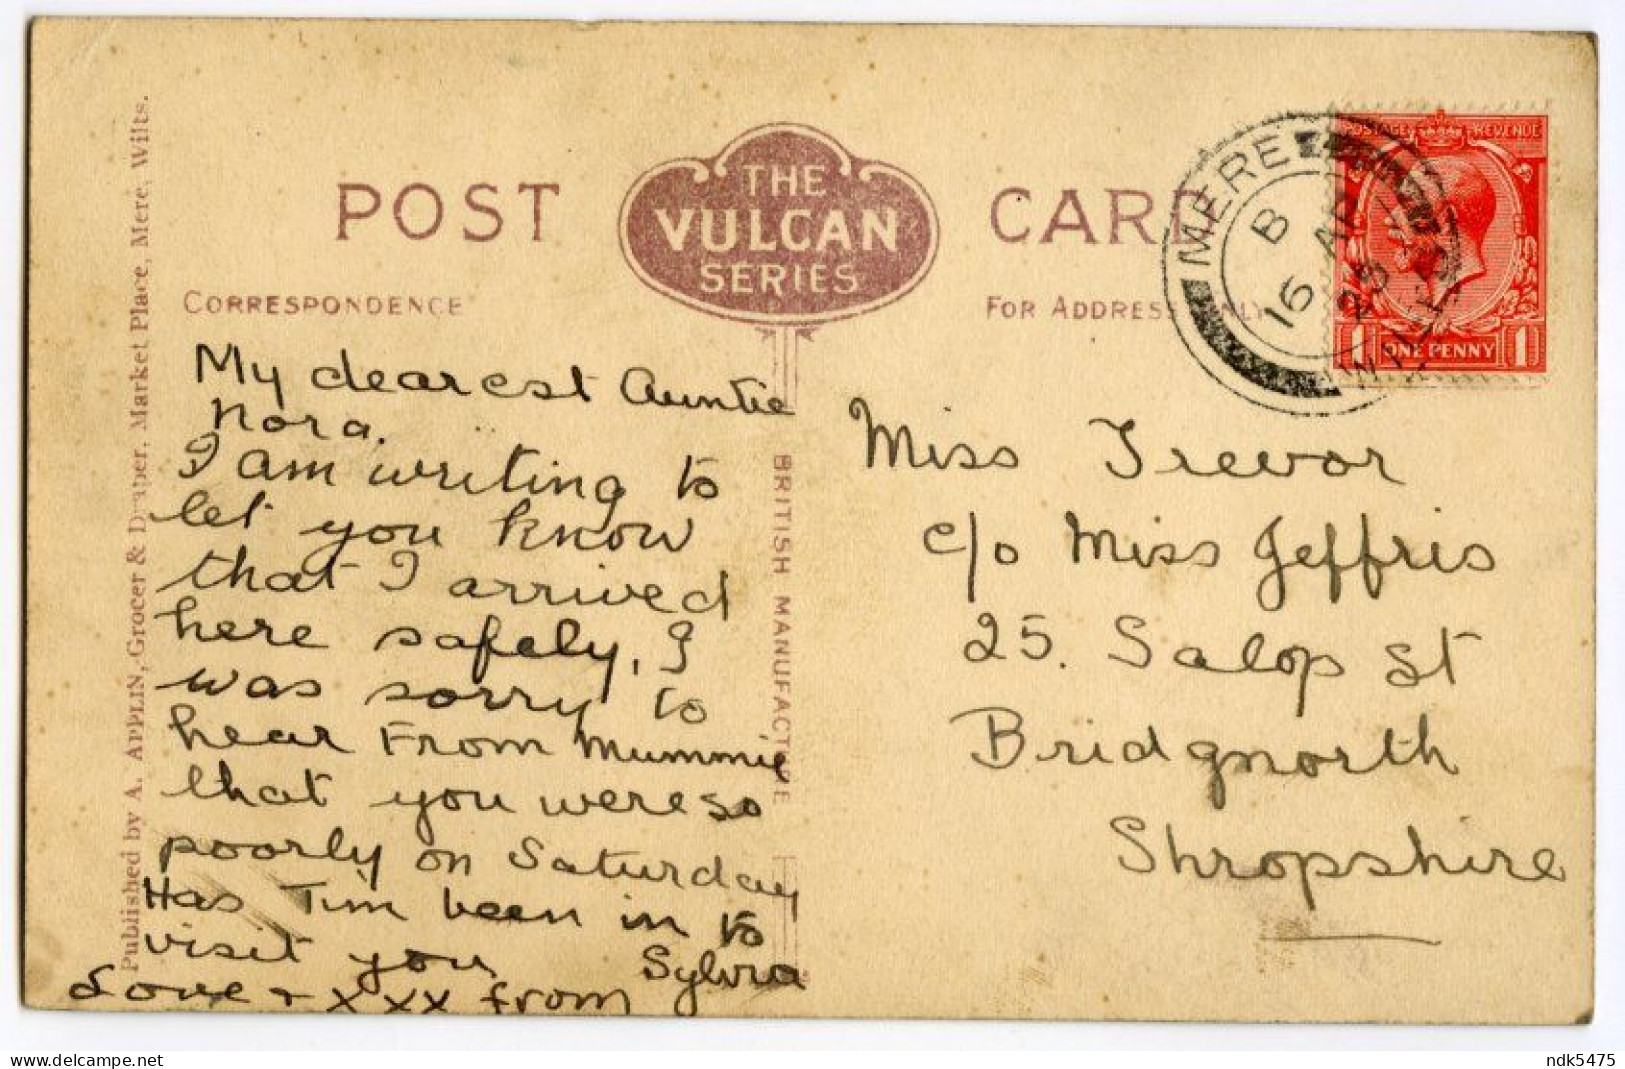 POST CARD
THE
VULCAN
SERIES
CORRESPONDENCE
FOR ADDRESS ONLY
Published by A. APPLIN, Grocer & Draper, Market Place, Mere, Wilts.
BRITISH MANUFACTURE
MERE
B
16 AP
25
WILTS
POSTAGE REVENUE
1 ONE PENNY 1
My dearest Auntie
Nora.
I am writing to
let you know
that I arrived
here safely, I
was sorry to
hear From Mummie
that you were so
poorly on Saturday
Has Tim been in to
visit you
Love + xxx from Sylvia
Miss Trevor
c/o Miss Jeffris
25. Salop St
Bridgnorth
Shropshire
ndk5475
https://www.delcampe.net